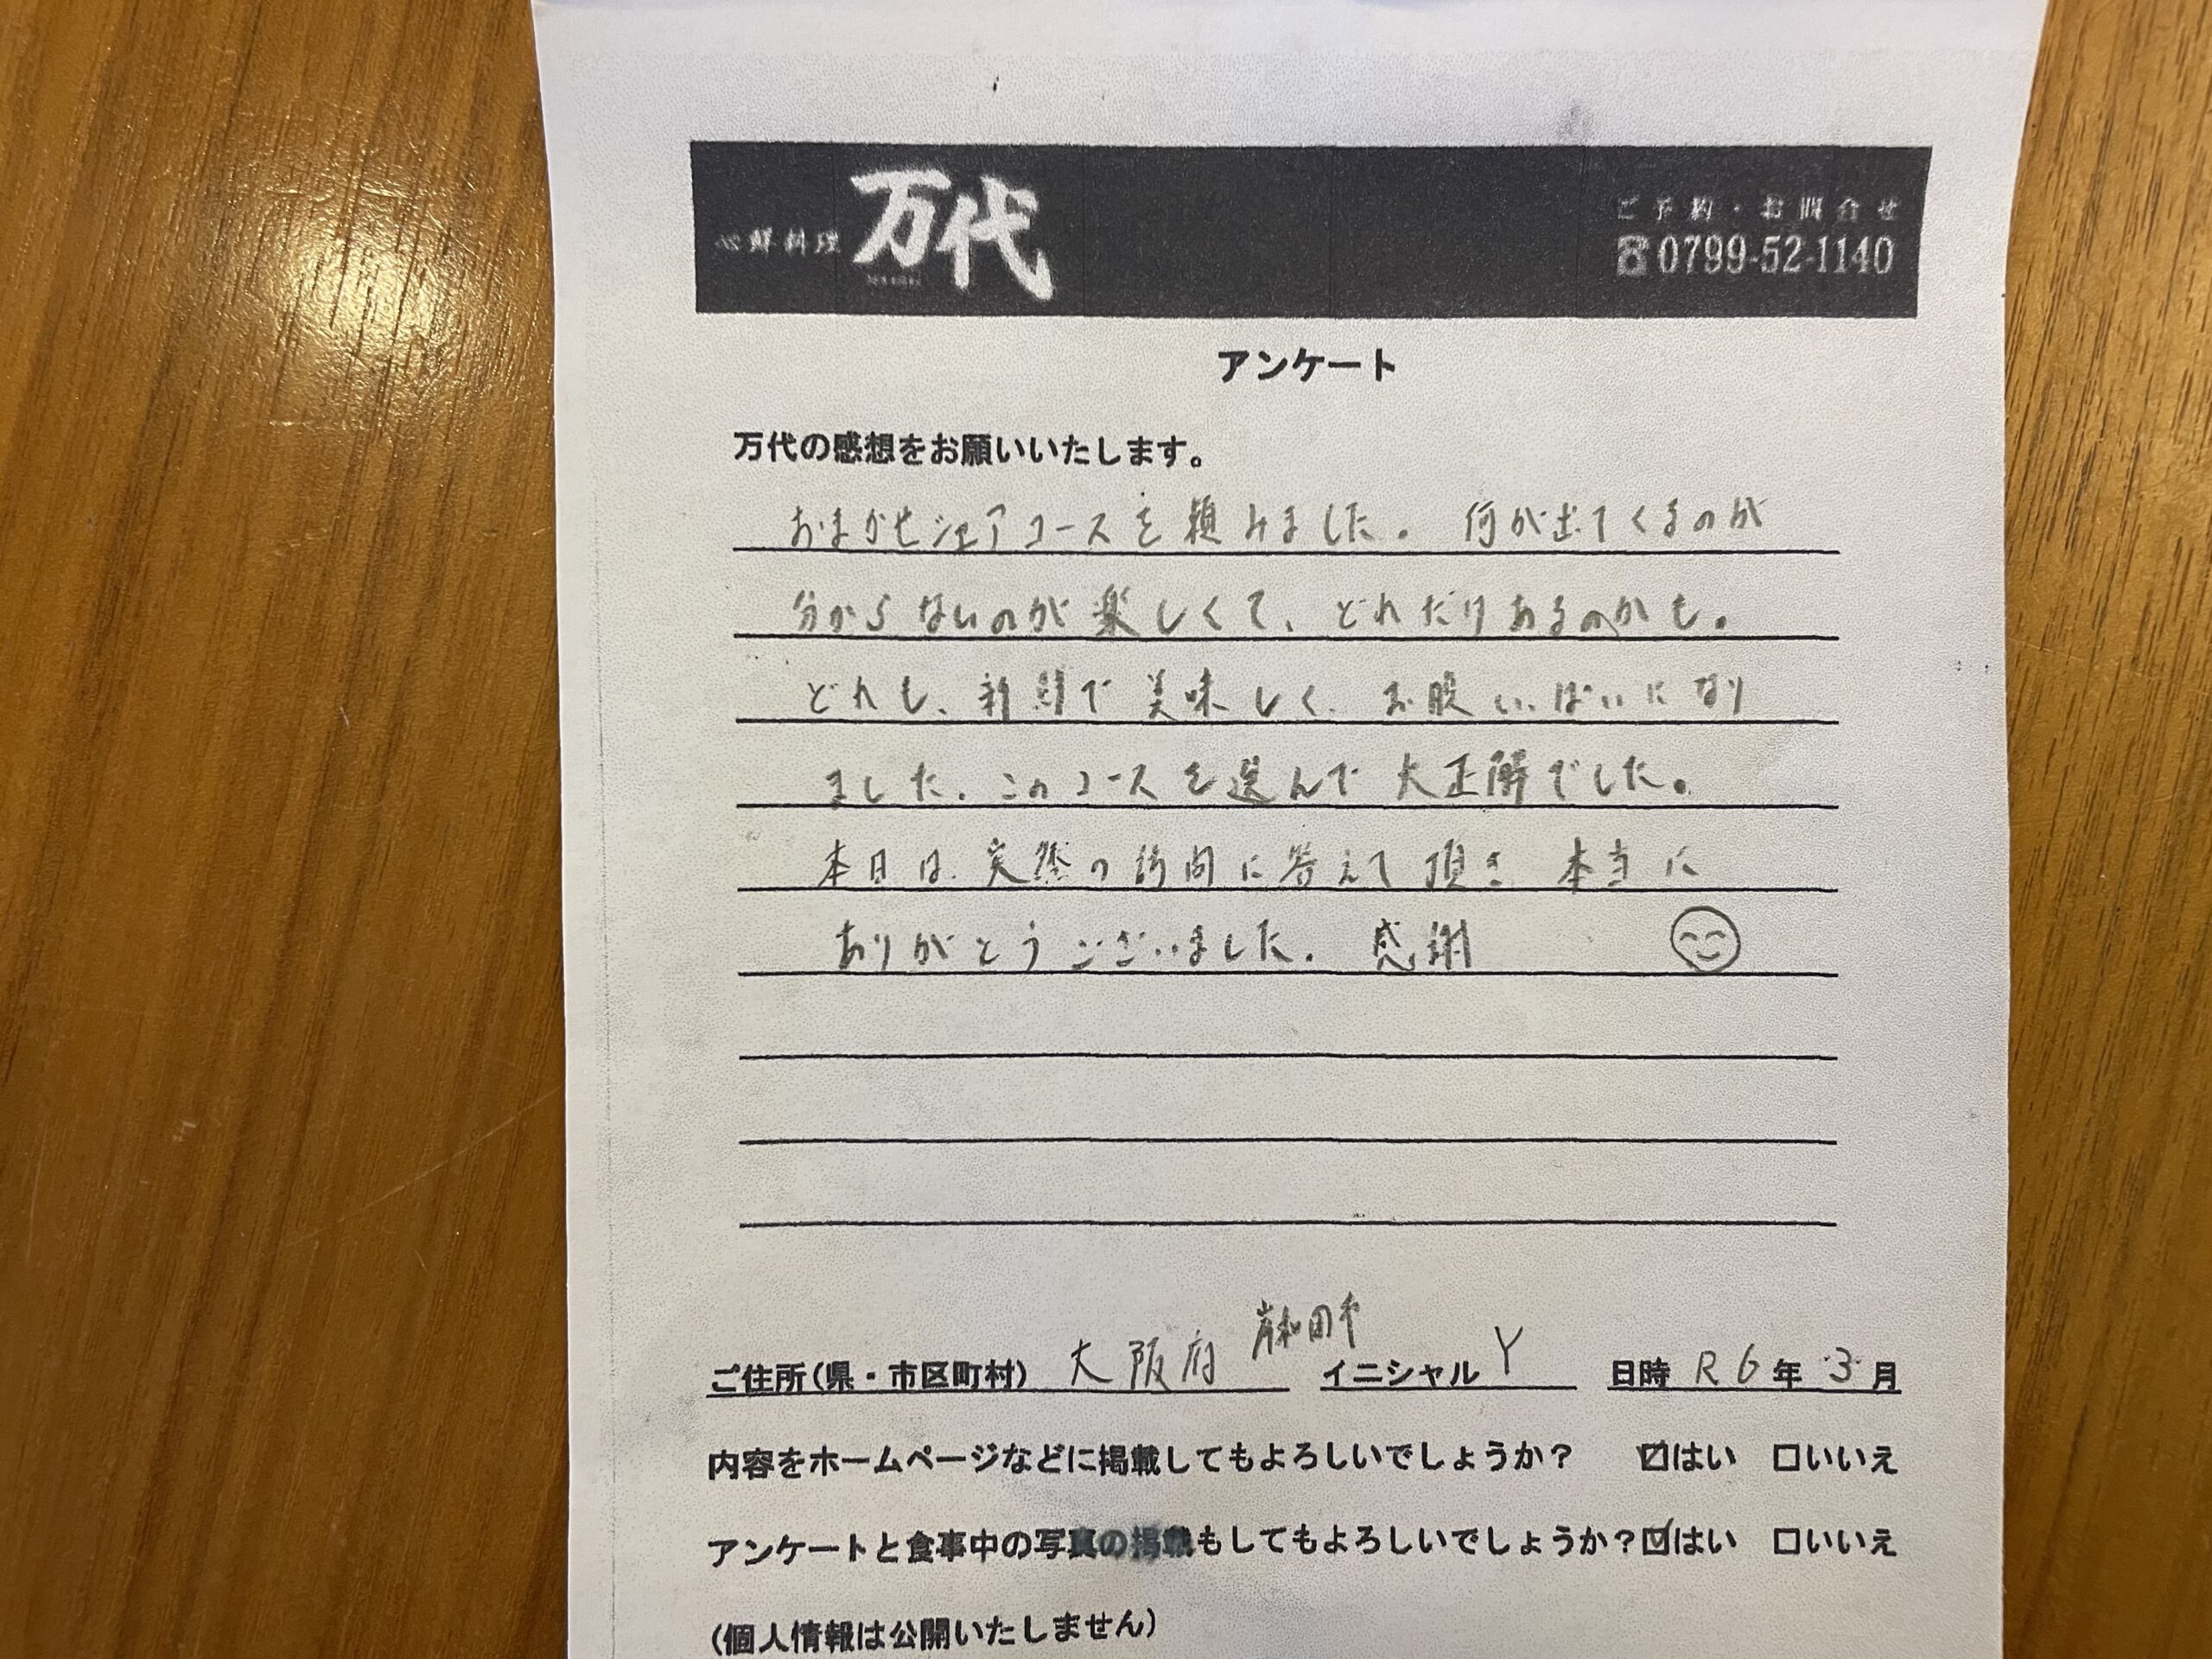 心鮮料理 万代
ご予約・お問合せ
☎0799-52-1140
アンケート
万代の感想をお願いいたします。
おまかせシェアコースを頼みました。何が出てくるのが
分からないのが楽しくて、どれだけあるのかも。
どれも、新鮮で美味しく、お腹いっぱいになり
ました。このコースを選んで大正解でした。
本日は、突然の訪問に答えて頂き 本当に
ありがとうございました。感謝
岸和田市
ご住所(県・市区町村) 大阪府 イニシャル Y 日時 R6年 3月
内容をホームページなどに掲載してもよろしいでしょうか? ☑はい □いいえ
アンケートと食事中の写真の掲載もしてもよろしいでしょうか?☑はい □いいえ
(個人情報は公開いたしません)